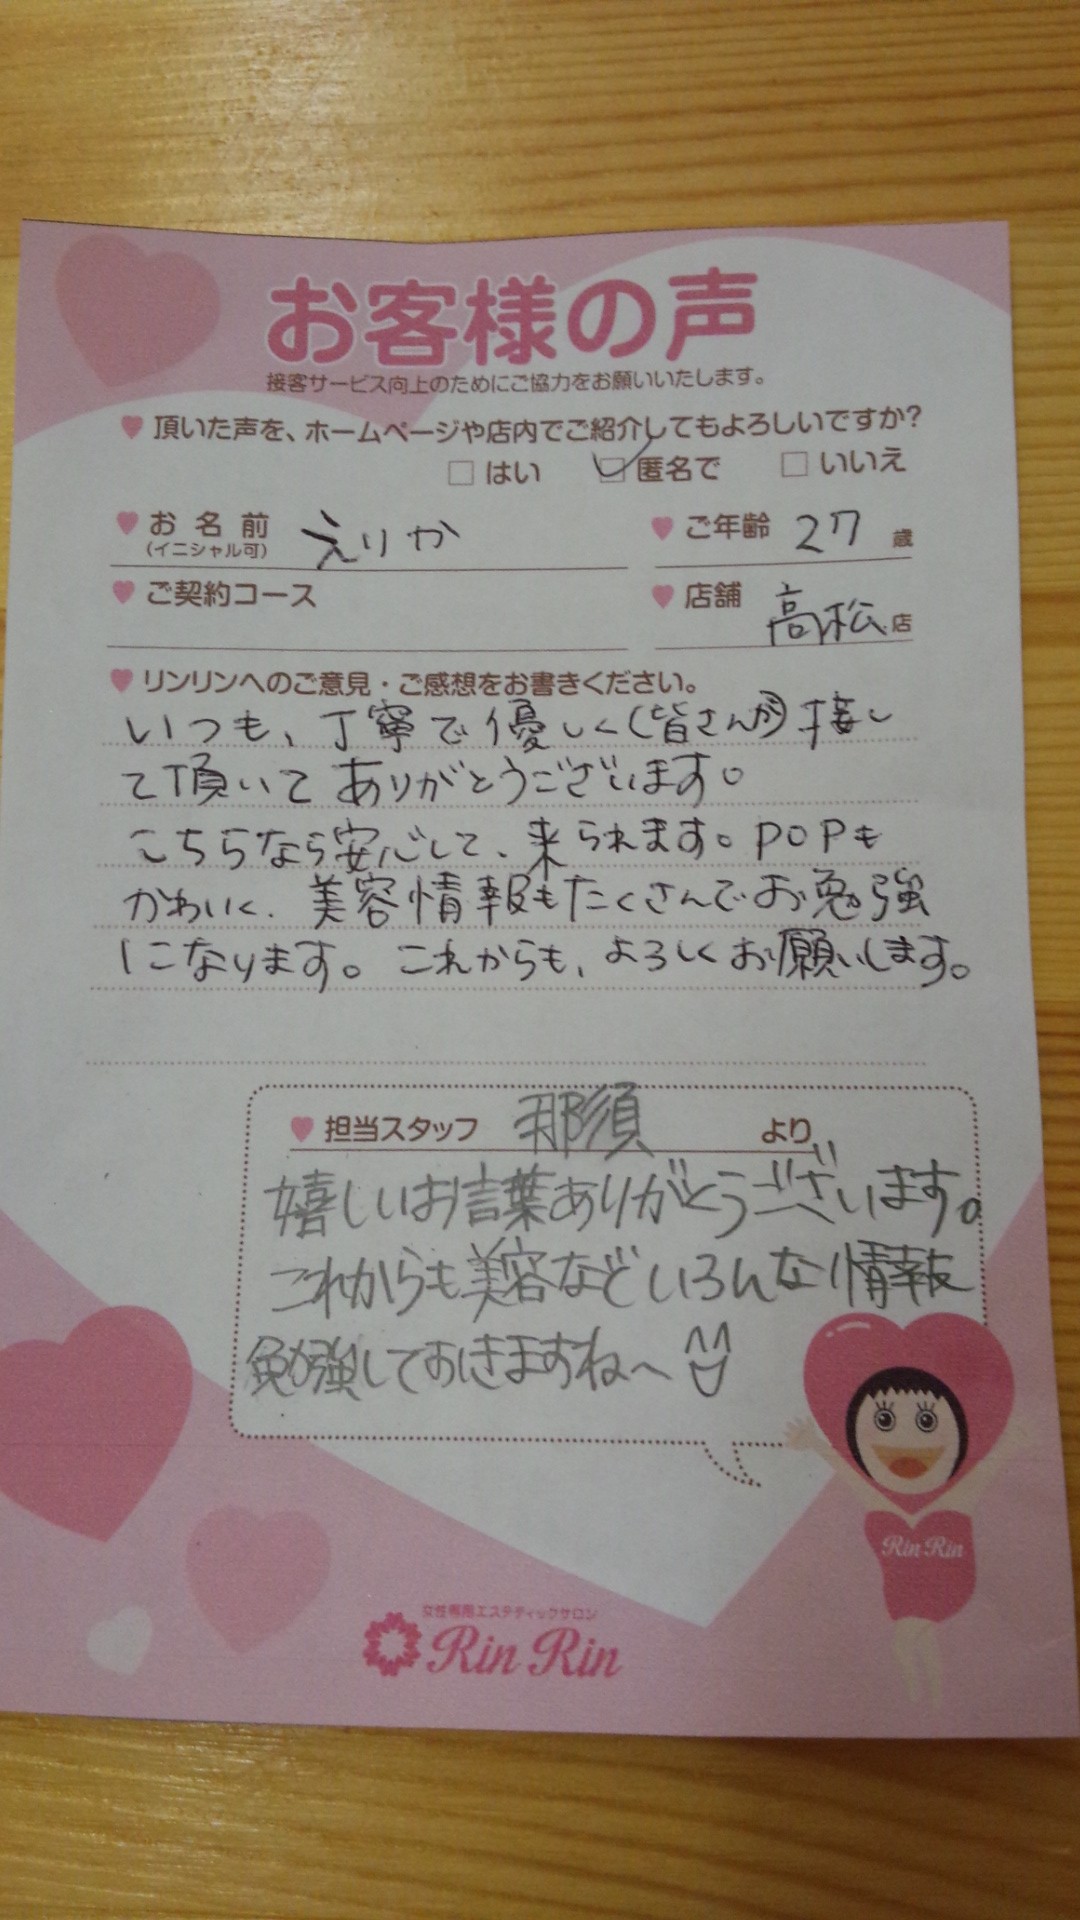 お客様の声
接客サービス向上のためにご協力をお願いいたします。
頂いた声を、ホームページや店内でご紹介してもよろしいですか?
はい 匿名で いいえ
お名前 えりか ご年齢 27 歳
(イニシャル可)
ご契約コース 店舗 高松 店
リンリンへのご意見・ご感想をお書きください。
いつも、丁寧で優しく(皆さんが)接し
て頂いてありがとうございます。
こちらなら安心して、来られます。POPも
かわいく、美容情報もたくさんでお勉強
になります。これからも、よろしくお願いします。
担当スタッフ 那須 より
嬉しいお言葉ありがとうございます。
これからも美容などいろんな情報
勉強しておきますね〜
Rin Rin
女性専用エステティックサロン
Rin Rin